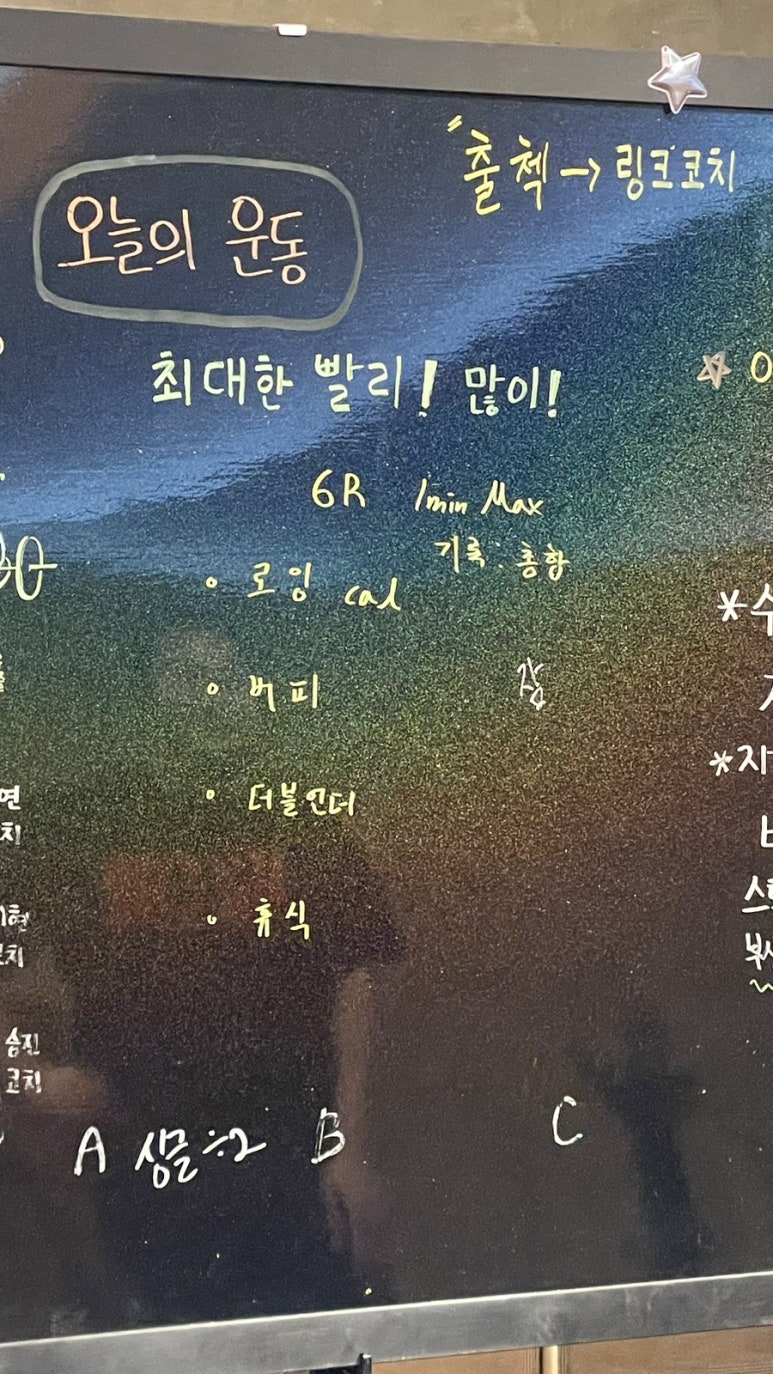 "출첵→링크코치
오늘의 운동
최대한 빨리! 많이!
6R 1min Max
기록: 총합
• 로잉 cal
• 버피
• 더블언더
• 휴식
연
치
현
코치
승진
코치
A 싱글÷2 B C